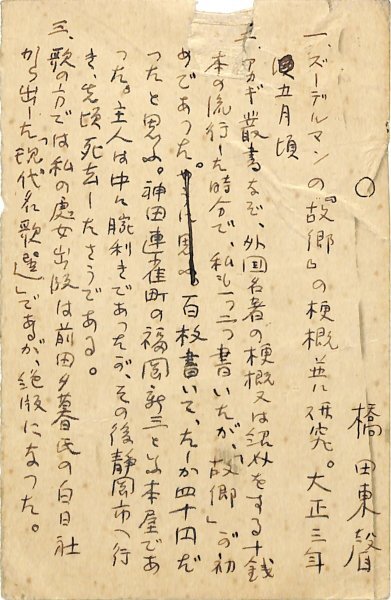 ○
橋田東聲
一、ズーデルマンの『故郷』の梗概並に研究。大正三年
五月頃
二、アカギ叢書など、外国名著の梗概又は紹介をする十銭
本の流行した時分で、私も一つ二つ書いたが、「故郷」が初
めであった。百枚書いて、たしか四十円だ
ったと思ふ。神田連雀町の福岡新三といふ本屋であ
った。主人は中々腕利きであったが、その後静岡市へ行
き、先頃死去したさうである。
三、歌の方では私の処女出版は前田夕暮氏の白日社
から出した『現代名歌選』であるが、絶版になった。